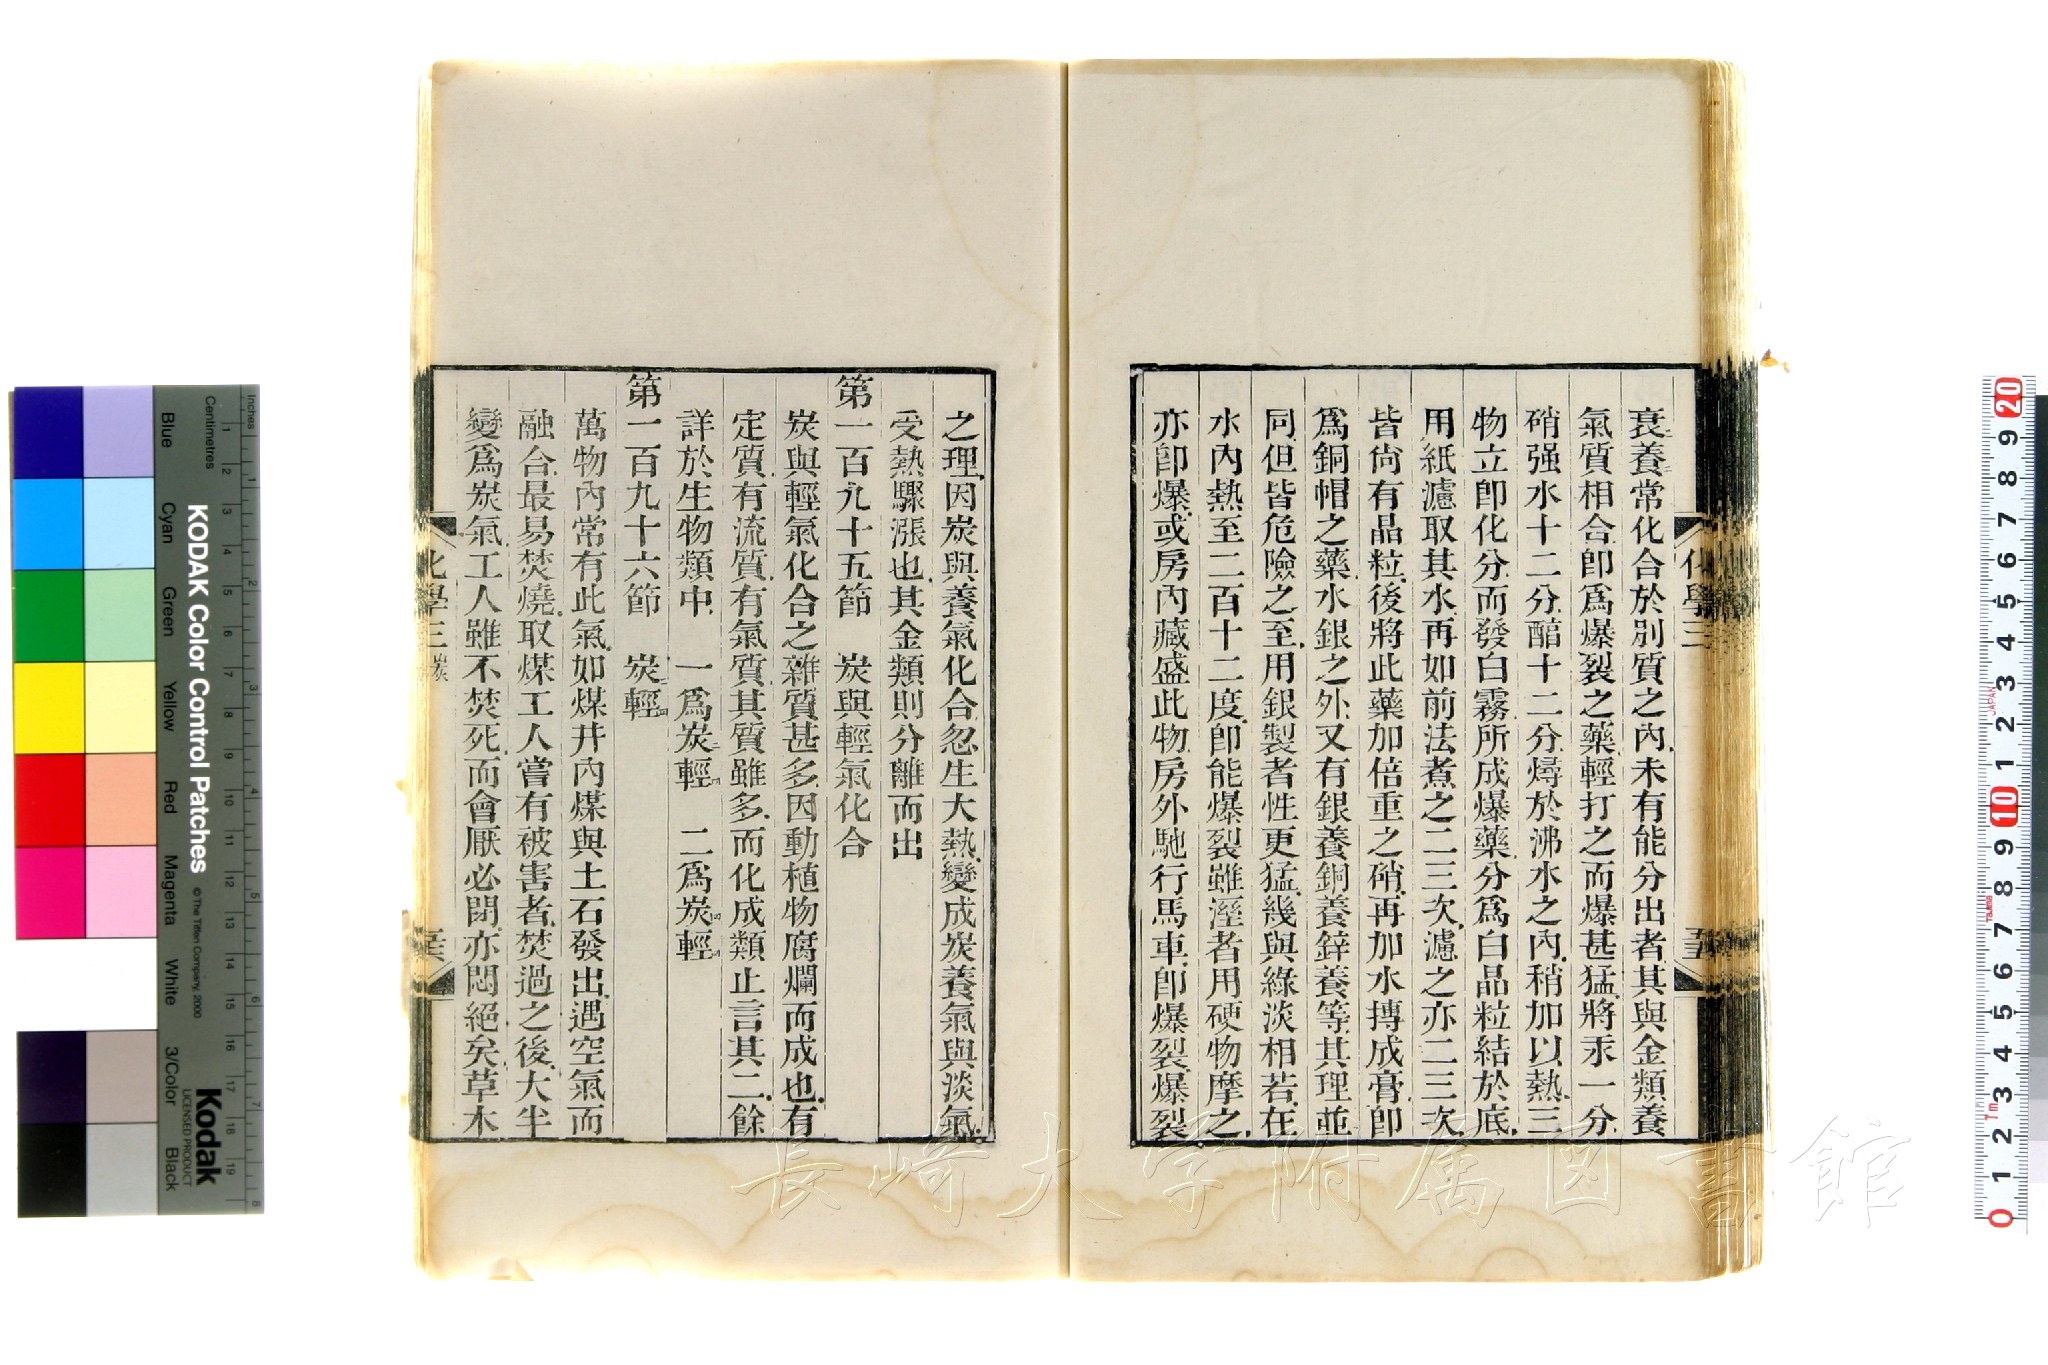 衰養常化合於別質之內未有能分出者其與金類養
氣質相合卽爲爆裂之藥輕打之而爆甚猛將汞一分
硝强水十二分醕十二分燖於沸水之內稍加以熱三
物立卽化分而發白霧所成爆藥分爲白晶粒結於底
用紙濾取其水再如前法煮之二三次濾之亦二三次
皆尙有晶粒後將此藥加倍重之硝再加水摶成膏卽
爲銅帽之藥水銀之外又有銀養銅養鋅養等其理並
同但皆危險之至用銀製者性更猛幾與綠淡相若在
水內熱至二百十二度卽能爆裂雖溼者用硬物摩之
亦卽爆或房內藏盛此物房外馳行馬車卽爆裂爆裂
化學三
之理因炭與養氣化合忽生大熱變成炭養氣與淡氣
受熱驟漲也其金類則分離而出
第一百九十五節 炭與輕氣化合
炭與輕氣化合之雜質甚多因動植物腐爛而成也有
定質有流質有氣質其質雖多而化成類止言其二餘
詳於生物類中 一爲炭二輕四 二爲炭四輕四
第一百九十六節 炭二輕四
萬物內常有此氣如煤井內煤與土石發出遇空氣而
融合最易焚燒取煤工人嘗有被害者焚過之後大半
變爲炭氣工人雖不焚死而會厭必閉亦悶絕矣草木
化學三 炭
長崎大学附属図書館
KODAK Color Control Patches
© The Tiffen Company, 2000
Kodak
LICENSED PRODUCT
Inches
Centimetres
Blue Cyan Green Yellow Red Magenta White 3/Color Black